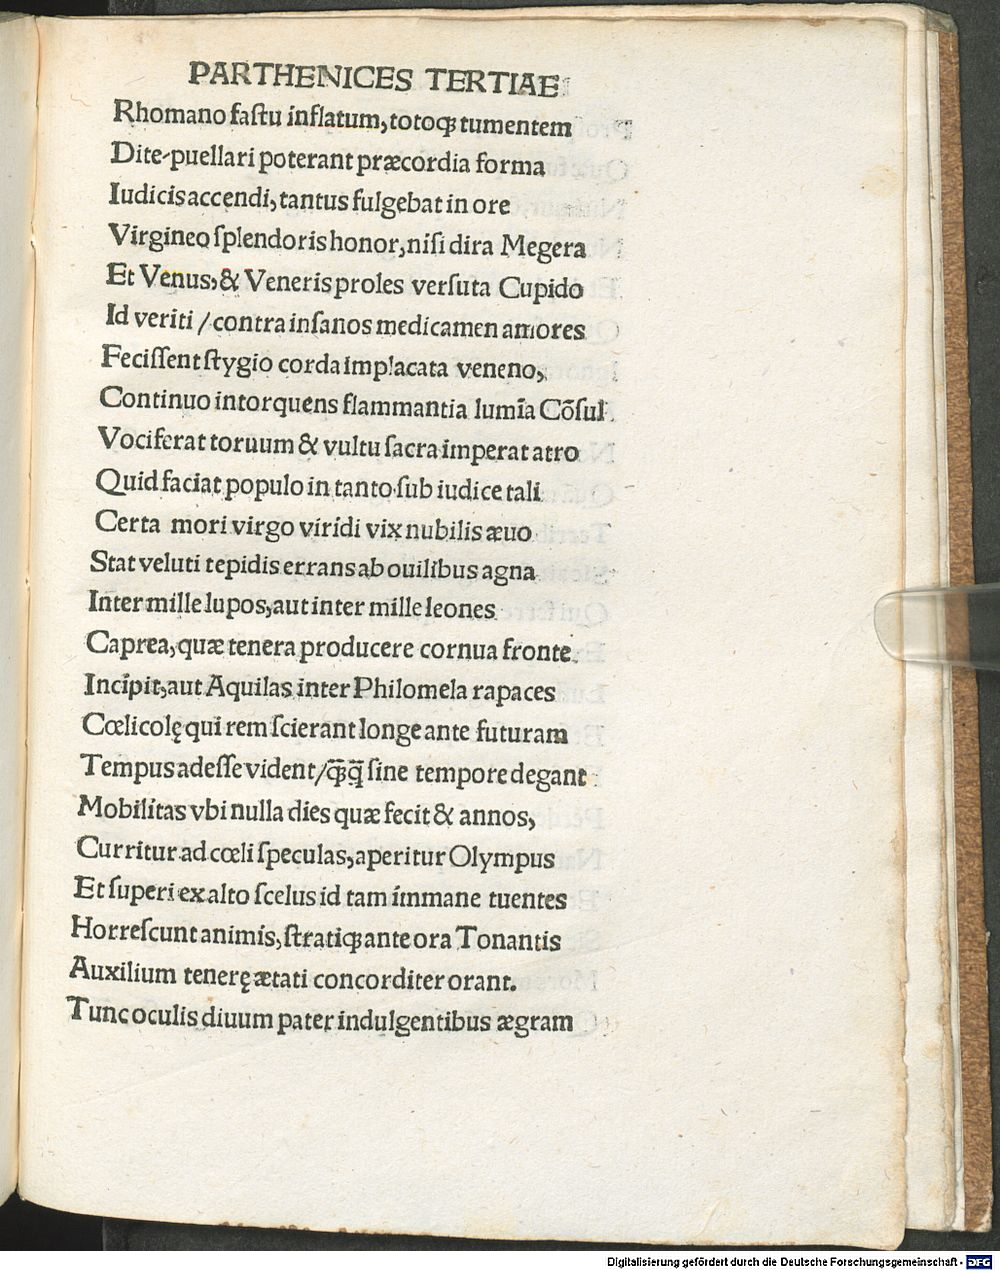 PARTHENICES TERTIAE
Rhomano faſtu inflatum, totoqꝫ tumentem
Dite-puellari poterant præcordia forma
Iudicis accendi, tantus fulgebat in ore
Virgineo ſplendoris honor, niſi dira Megera
Et Venus, & Veneris proles verſuta Cupido
Id veriti / contra inſanos medicamen amores
Feciſſent ſtygio corda implacata veneno,
Continuo intorquens flammantia lumīa Cōſul
Vociferat toruum & vultu ſacra imperat atro
Quid faciat populo in tanto ſub iudice tali
Certa mori virgo viridi vix nubilis æuo
Stat veluti tepidis errans ab ouilibus agna
Inter mille lupos, aut inter mille leones
Caprea, quæ tenera producere cornua fronte.
Incipit, aut Aquilas inter Philomela rapaces
Cœlicolę qui rem ſcierant longe ante futuram
Tempus adeſſe vident / qꝫ̄q̄ ſine tempore degant
Mobilitas vbi nulla dies quæ fecit & annos,
Curritur ad cœli ſpeculas, aperitur Olympus
Et ſuperi ex alto ſcelus id tam immane tuentes
Horreſcunt animis, ſtratiqꝫ ante ora Tonantis
Auxilium tenerę ætati concorditer orant.
Tunc oculis diuum pater indulgentibus ægram
Digitalisierung gefördert durch die Deutsche Forschungsgemeinschaft - DFG